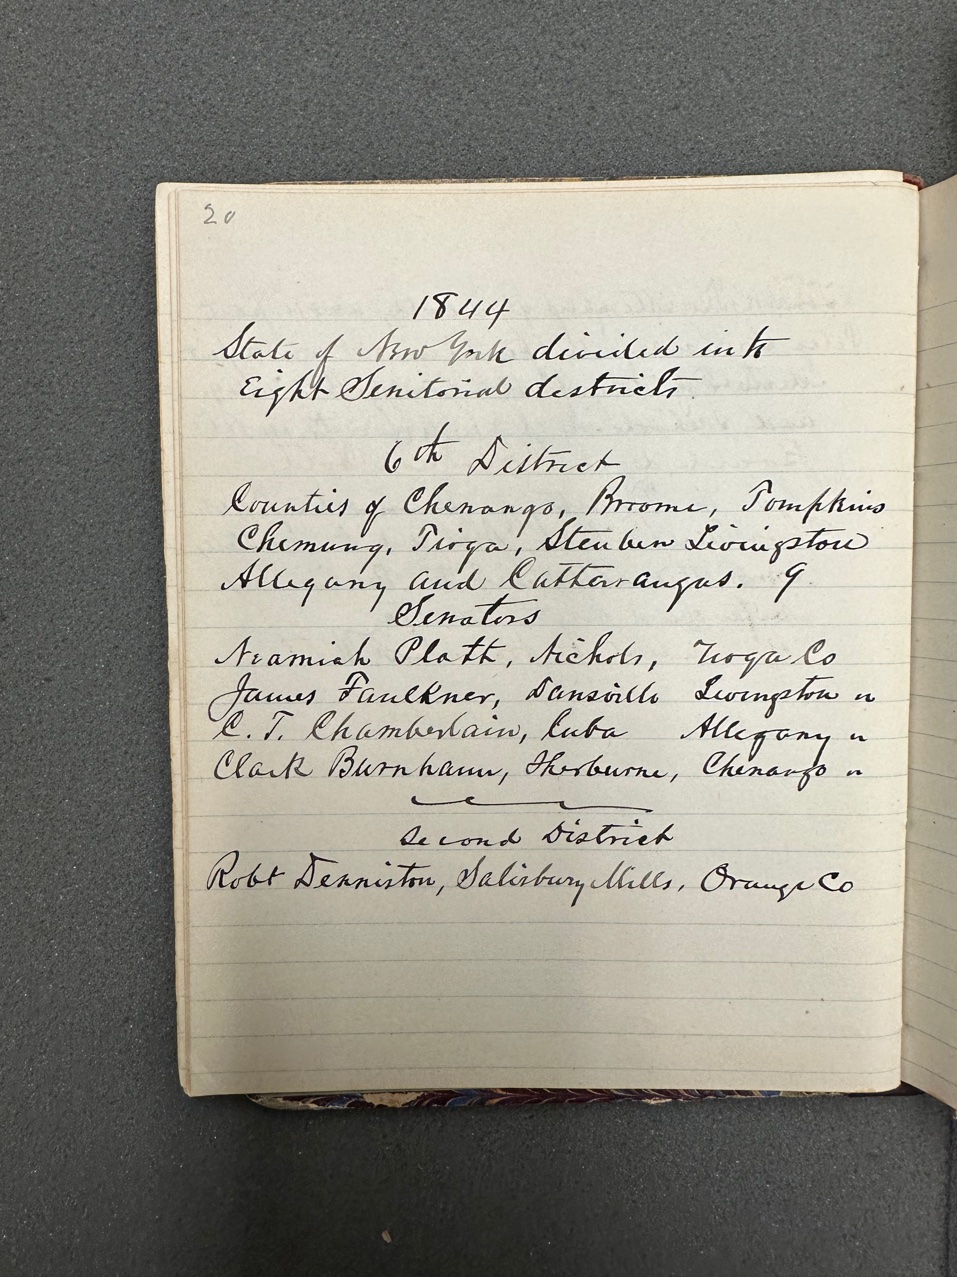 20
1844
State of New York divided into
Eight Senitorial districts.
6th District
Counties of Chenango, Broome, Tompkins
Chemung, Tioga, Steuben Livingston
Allegany and Catterraugus. 9.
Senators
Neamiah Platt, Nichols, Tioga Co
James Faulkner, Dansville Livingston "
C. T. Chamberlain, Cuba Allegany "
Clark Burnham, Sherburne, Chenango "
Second District
Robt Denniston, Salisbury Mills, Orange Co